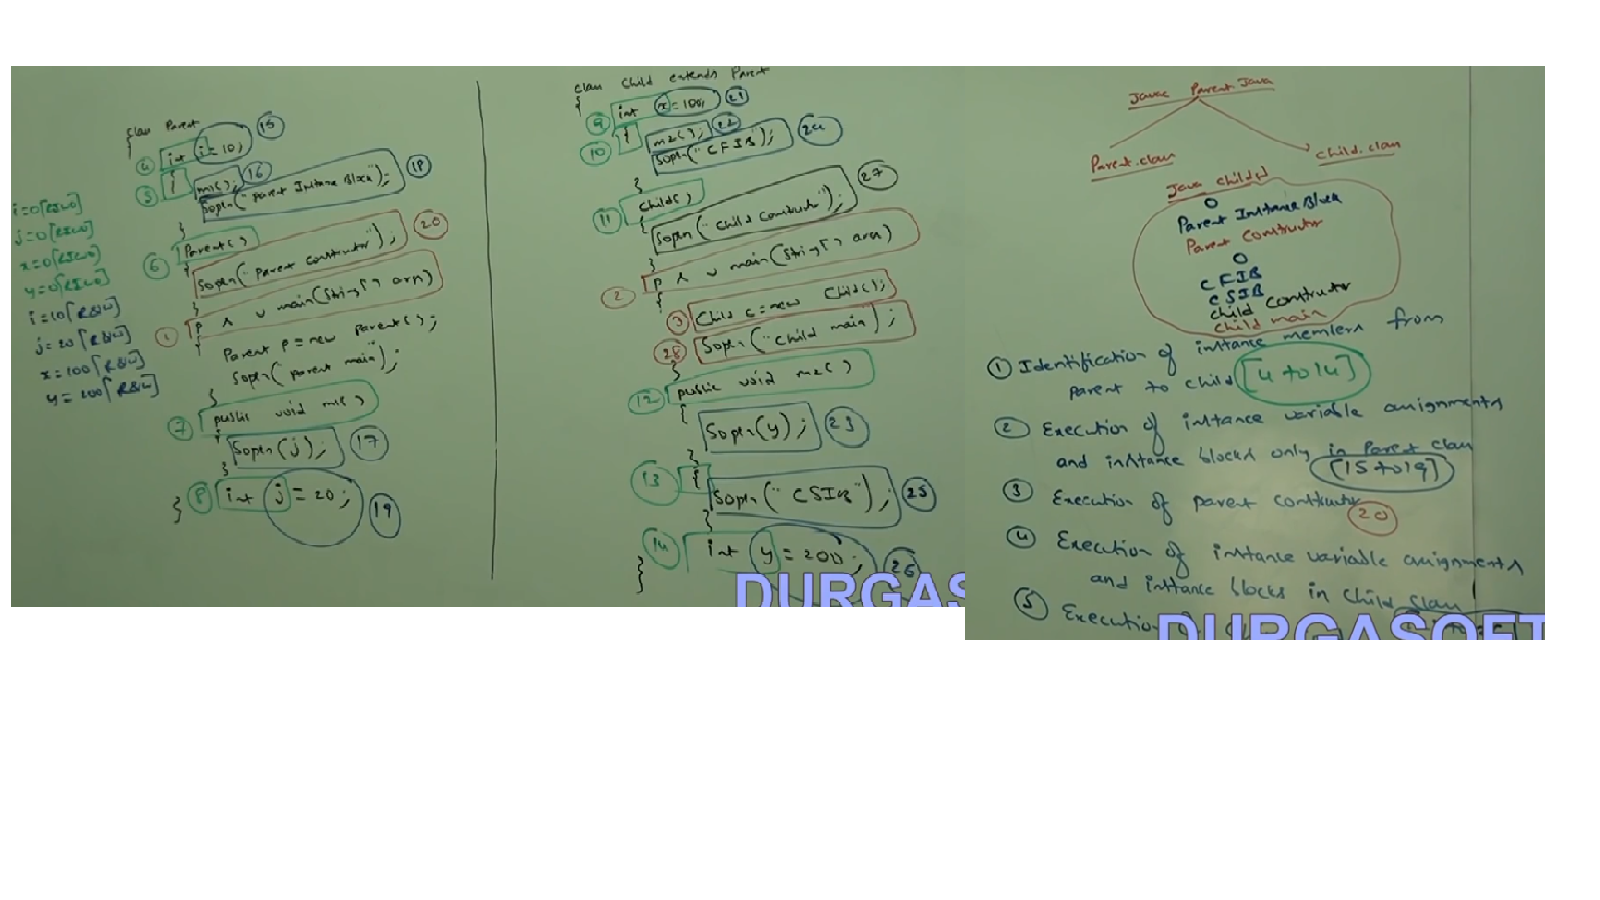 class Parent
{
4 int i = 10; 15
5 { m1(); 16
Sopln("Parent Instance Block"); 18
}
6 Parent()
{
Sopln("Parent constructor"); 20
}
1 p s v main(String[] args)
{
Parent p = new Parent();
Sopln("parent main");
}
7 public void m1()
{
Sopln(j); 17
}
8 int j = 20; 19
}
i=0[RIWO]
j=0[RIWO]
x=0[RIWO]
y=0[RIWO]
i=10[R&W]
j=20[R&W]
x=100[R&W]
y=200[R&W]
class Child extends Parent
{
9 int x = 100; 21
10 { m2(); 22
Sopln("CFIB"); 24
}
11 Child()
{
Sopln("Child Constructor"); 27
}
2 p s v main(String[] args)
{
3 Child c = new Child();
28 Sopln("Child main");
}
12 public void m2()
{
Sopln(y); 23
}
13 {
Sopln("CSIB"); 25
}
14 int y = 200; 26
}
DURGAS
Javac Parent.Java
Parent.class Child.class
Java Child↵
0
Parent Instance Block
Parent Constructor
0
CFIB
CSIB
Child Constructor
Child main
1 Identification of instance members from
parent to child [4 to 14]
2 Execution of instance variable assignments
and instance blocks only in Parent class
[15 to 19]
3 Execution of parent constructor
20
4 Execution of instance variable assignments
and instance blocks in child class
5 Execution of
DURGASOFT